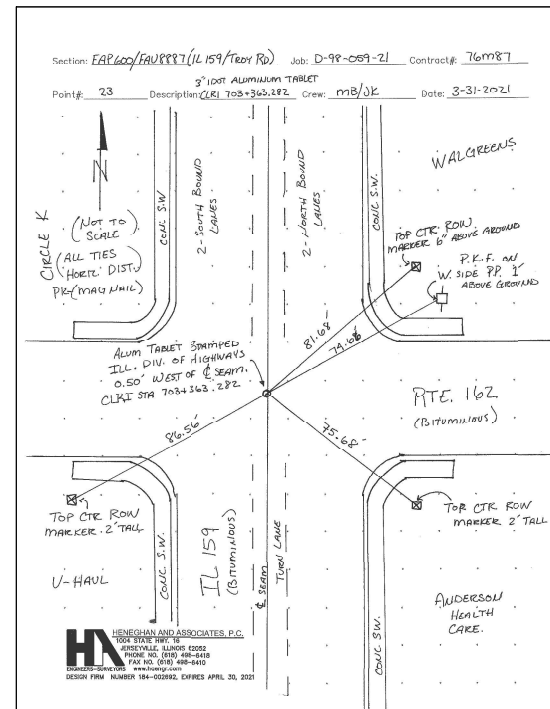 Section: EAP600/FAU8887 (IL 159/TROY RD) Job: D-98-059-21 Contract#: 76M87
3" IDOT ALUMINUM TABLET
Point#: 23 Description: CLRI 703+363.282 Crew: MB/JK Date: 3-31-2021
N
CIRCLE K
(NOT TO
SCALE)
(ALL TIES
'HORIZ' DIST.)
PK-(MAG NAIL)
CONC. S.W.
2-SOUTH BOUND
LANES
2-NORTH BOUND
LANES
CONC. S.W.
WALGREENS
TOP CTR ROW
MARKER 6" ABOVE GROUND
P.K.F. ON
W. SIDE P.P. 1'
ABOVE GROUND
81.68'
74.68'
ALUM TABLET STAMPED
ILL. DIV. OF HIGHWAYS
0.50' WEST OF ℄ SEAM.
CLRI STA 703+363.282
86.56'
75.68'
RTE. 162
(BITUMINOUS)
TOP CTR ROW
MARKER. 2' TALL
TOP CTR ROW
MARKER 2' TALL
U-HAUL
CONC. S.W.
IL 159
(BITUMINOUS)
℄ SEAM
TURN LANE
CONC SW.
ANDERSON
HEALTH
CARE.
HA
ENGINEERS-SURVEYORS
HENEGHAN AND ASSOCIATES, P.C.
1004 STATE HWY. 16
JERSEYVILLE, ILLINOIS 62052
PHONE NO. (618) 498-6418
FAX NO. (618) 498-6410
www.haengr.com
DESIGN FIRM NUMBER 184-002692, EXPIRES APRIL 30, 2021